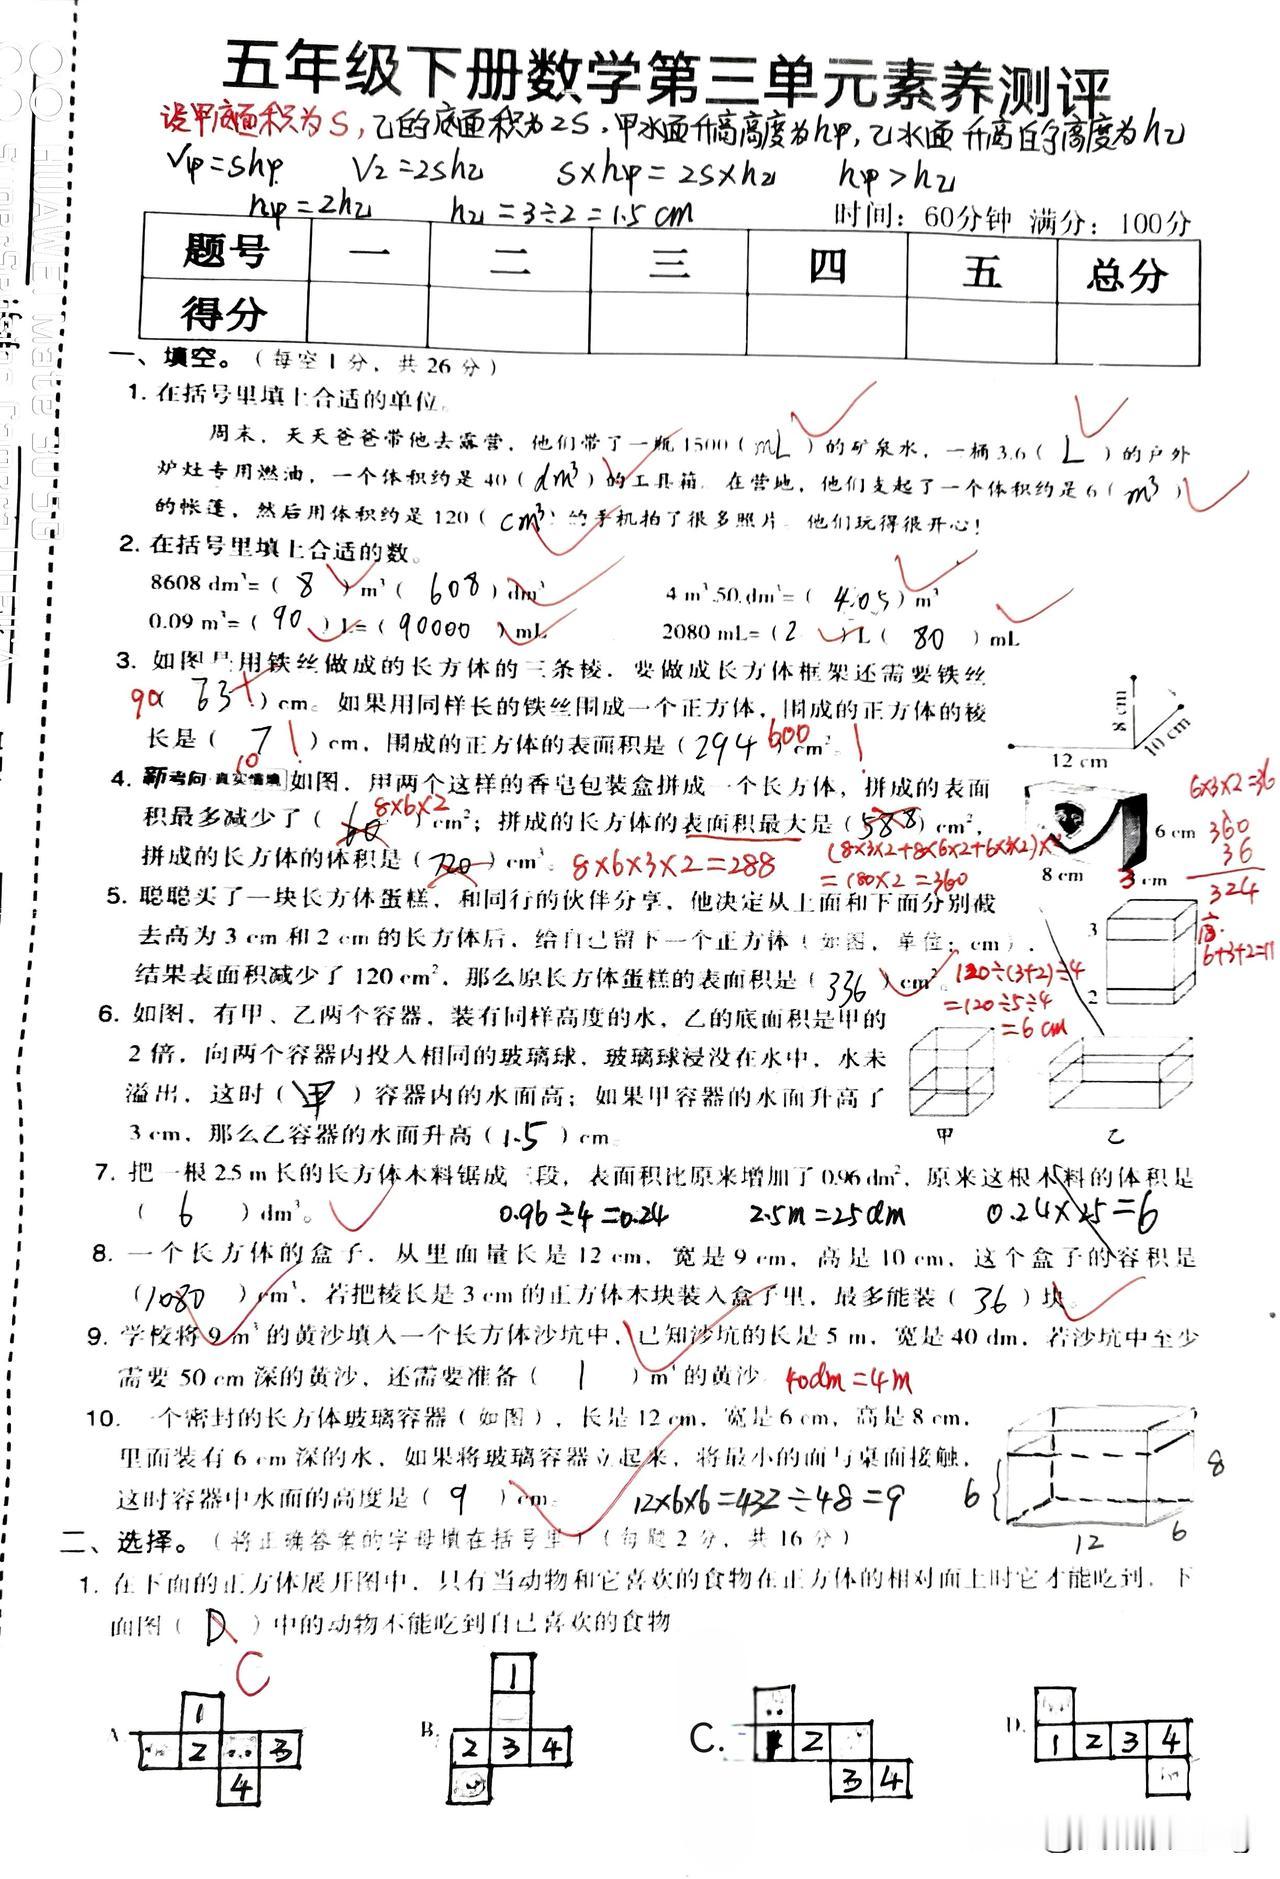 五年级下册数学第三单元素养测评
设甲底面积为S,乙的底面积为2S,甲水面升高高度为h甲,乙水面升高的高度为h乙
V甲=sh甲 V乙=2sh乙 s×h甲=2s×h乙 h甲>h乙
h甲=2h乙 h乙=3÷2=1.5cm
时间：60分钟 满分：100分
题号 一 二 三 四 五 总分
得分
一、填空。（每空1分，共26分）
1. 在括号里填上合适的单位。
周末，天天爸爸带他去露营，他们带了一瓶1500（mL）的矿泉水，一桶3.6（L）的户外
炉灶专用燃油，一个体积约是40（dm³）的工具箱。在营地，他们支起了一个体积约是6（m³）
的帐蓬，然后用体积约是120（cm³）的手机拍了很多照片。他们玩得很开心！
2. 在括号里填上合适的数。
8608 dm³=（8）m³（608）dm³ 4 m³ 50 dm³=（4.05）m³
0.09 m³=（90）L=（90000）mL 2080 mL=（2）L（80）mL
3. 如图是用铁丝做成的长方体的三条棱，要做成长方体框架还需要铁丝
90（63）cm。如果用同样长的铁丝围成一个正方体，围成的正方体的棱
长是（7）cm，围成的正方体的表面积是（294）cm²。
10 600
8 cm 10 cm
12 cm
4. 新考向·真实情境 如图，用两个这样的香皂包装盒拼成一个长方体，拼成的表面
积最多减少了（60）cm²；拼成的长方体的表面积最大是（588）cm²，
8×6×2
拼成的长方体的体积是（720）cm³。 8×6×3×2=288
(8×3×2+8×6×2+6×3×2)×2
=180×2=360
6×3×2=36
360
36
324
6 cm
8 cm 3 cm
5. 聪聪买了一块长方体蛋糕，和同行的伙伴分享，他决定从上面和下面分别截
去高为3 cm和2 cm的长方体后，给自己留下一个正方体（如图，单位：cm），
结果表面积减少了120 cm²，那么原长方体蛋糕的表面积是（336）cm²。
120÷(3+2)÷4
=120÷5÷4
=6cm
3
2
高:
6+3+2=11
6. 如图，有甲、乙两个容器，装有同样高度的水，乙的底面积是甲的
2倍，向两个容器内投入相同的玻璃球，玻璃球浸没在水中，水未
溢出，这时（甲）容器内的水面高；如果甲容器的水面升高了
3 cm，那么乙容器的水面升高（1.5）cm。
甲 乙
7. 把一根2.5 m长的长方体木料锯成三段，表面积比原来增加了0.96 dm²，原来这根木料的体积是
（6）dm³。 0.96÷4=0.24 2.5m=25dm 0.24×25=6
8. 一个长方体的盒子，从里面量长是12 cm，宽是9 cm，高是10 cm，这个盒子的容积是
（1080）cm³，若把棱长是3 cm的正方体木块装入盒子里，最多能装（36）块。
9. 学校将9 m³的黄沙填入一个长方体沙坑中，已知沙坑的长是5 m，宽是40 dm，若沙坑中至少
需要50 cm深的黄沙，还需要准备（1）m³的黄沙。 40dm=4m
10. 一个密封的长方体玻璃容器（如图），长是12 cm，宽是6 cm，高是8 cm，
里面装有6 cm深的水，如果将玻璃容器立起来，将最小的面与桌面接触，
这时容器中水面的高度是（9）cm。 12×6×6=432÷48=9
6 8
12 6
二、选择。（将正确答案的字母填在括号里）（每题2分，共16分）
1. 在下面的正方体展开图中，只有当动物和它喜欢的食物在正方体的相对面上时它才能吃到，下
面图（D）中的动物不能吃到自己喜欢的食物
C
A. 1 2 3 4
B. 1 2 3 4
C. 1 2 3 4
D. 1 2 3 4
HUAWEI Mate 30 5G